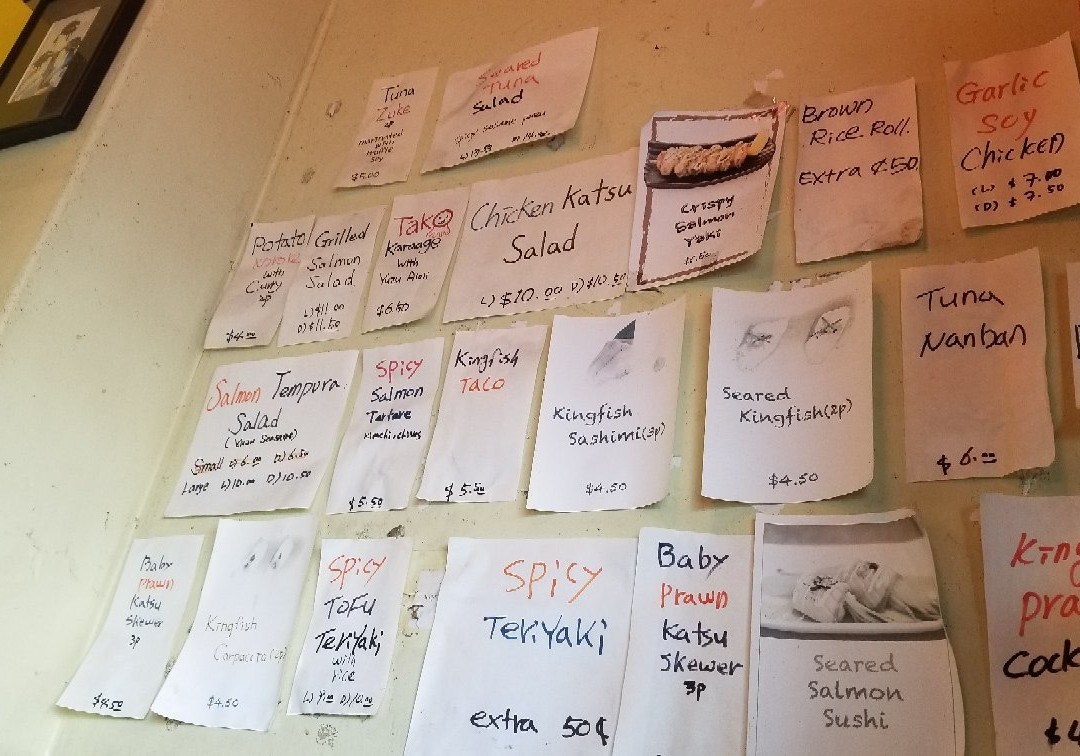 Tuna
Zuke
marinated
with
truffle
soy
$5.00
Seared
Tuna
Salad
Brown
Rice Roll.
Extra ¢50
Garlic
Soy
Chicken
(L) $7.00
(D) $7.50
Potato
with
Curry
$4.00
Grilled
Salmon
Salad
L)$11.00
D)$11.50
Tako
Karaage
With
Yuzu Aioli
$6.50
Chicken Katsu
Salad
L) $10.00 D) $10.50
Crispy
Salmon
Yaki
Tuna
Nanban
$6.00
Salmon Tempura
Salad
Small L)6.00 D)6.50
Large L)10.00 D)10.50
Spicy
Salmon
Tartare
$5.50
Kingfish
Taco
$5.50
Kingfish
Sashimi(3p)
$4.50
Seared
Kingfish(2p)
$4.50
Baby
Prawn
Katsu
Skewer
3p
$4.50
Kingfish
$4.50
Spicy
Tofu
Teriyaki
with
rice
Spicy
Teriyaki
extra 50¢
Baby
Prawn
Katsu
Skewer
3p
Seared
Salmon
Sushi